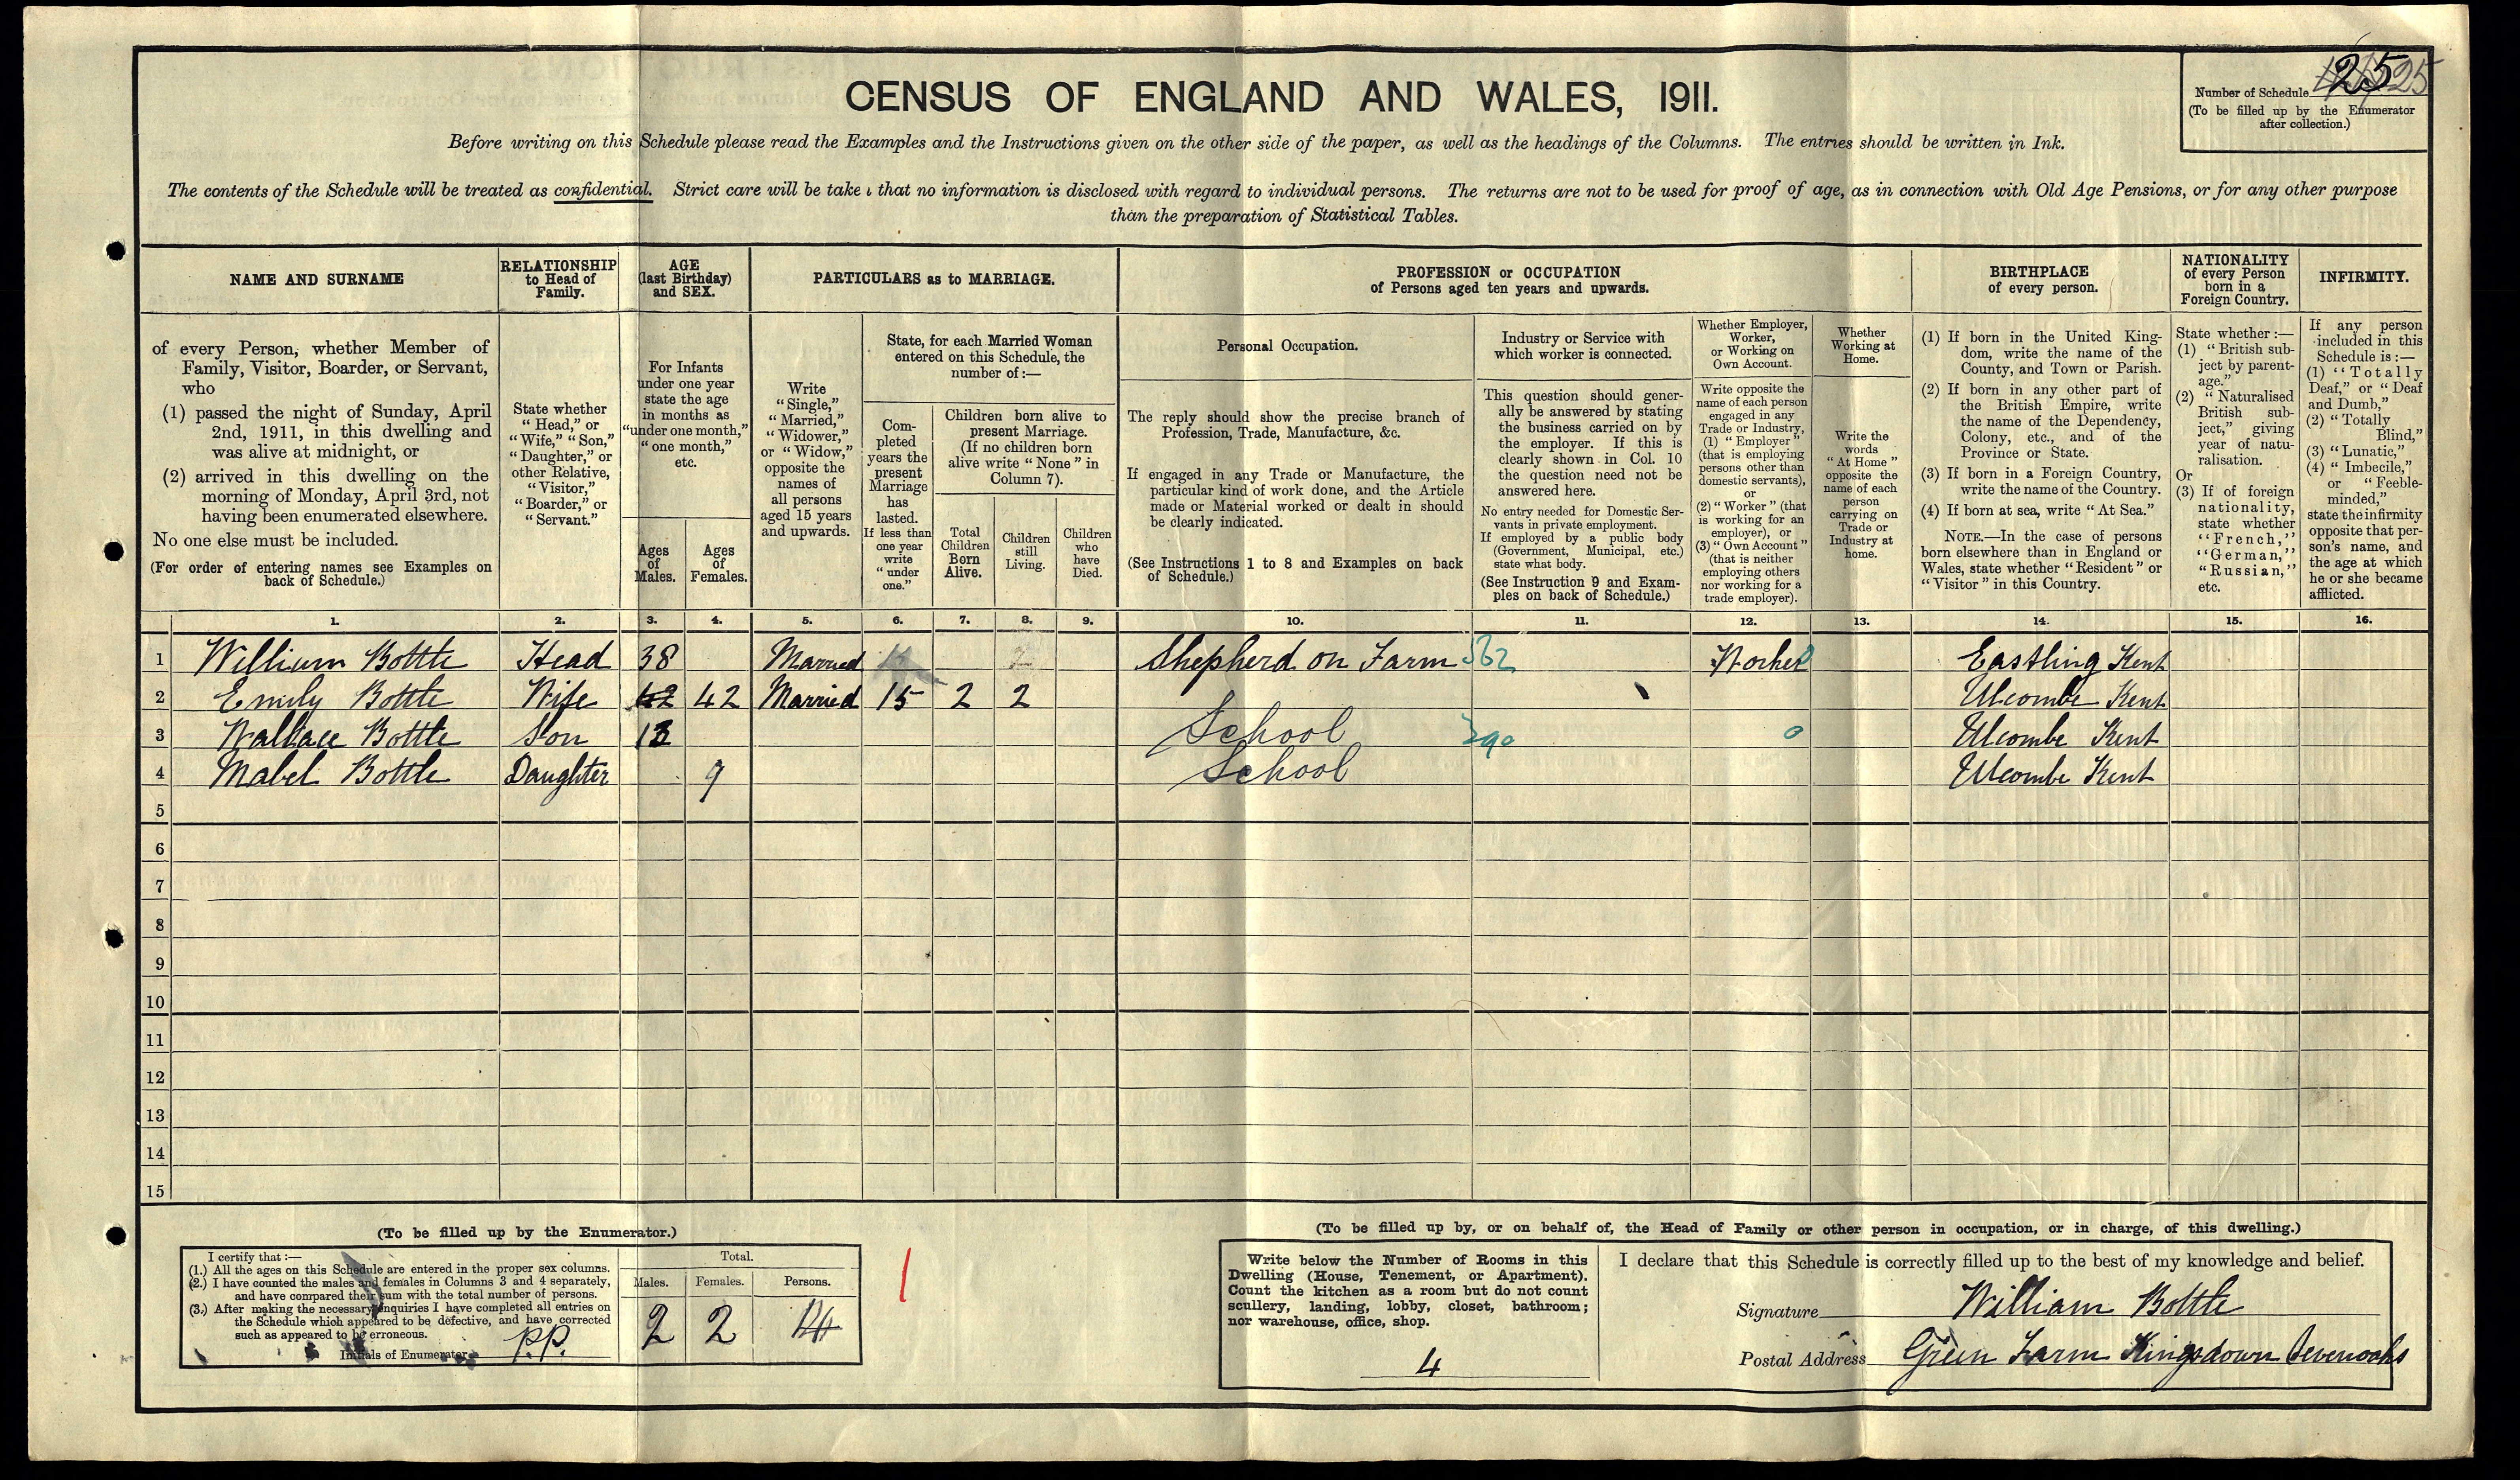 CENSUS OF ENGLAND AND WALES, 1911.
Number of Schedule 25
(To be filled up by the Enumerator
after collection.)
Before writing on this Schedule please read the Examples and the Instructions given on the other side of the paper, as well as the headings of the Columns. The entries should be written in Ink.
The contents of the Schedule will be treated as confidential. Strict care will be take that no information is disclosed with regard to individual persons. The returns are not to be used for proof of age, as in connection with Old Age Pensions, or for any other purpose
than the preparation of Statistical Tables.
NAME AND SURNAME
of every Person, whether Member of
Family, Visitor, Boarder, or Servant,
who
(1) passed the night of Sunday, April
2nd, 1911, in this dwelling and
was alive at midnight, or
(2) arrived in this dwelling on the
morning of Monday, April 3rd, not
having been enumerated elsewhere.
No one else must be included.
(For order of entering names see Examples on
back of Schedule.)
RELATIONSHIP
to Head of
Family.
State whether
"Head," or
"Wife," "Son,"
"Daughter," or
other Relative,
"Visitor,"
"Boarder," or
"Servant."
AGE
(last Birthday)
and SEX.
For Infants
under one year
state the age
in months as
"under one month,"
"one month,"
etc.
Ages
of
Males.
Ages
of
Females.
PARTICULARS as to MARRIAGE.
Write
"Single,"
"Married,"
"Widower,"
or "Widow,"
opposite the
names of
all persons
aged 15 years
and upwards.
State, for each Married Woman
entered on this Schedule, the
number of:—
Com-
pleted
years the
present
Marriage
has
lasted.
If less than
one year
write
"under
one."
Children born alive to
present Marriage.
(If no children born
alive write "None" in
Column 7).
Total
Children
Born
Alive.
Children
still
Living.
Children
who
have
Died.
PROFESSION or OCCUPATION
of Persons aged ten years and upwards.
Personal Occupation.
The reply should show the precise branch of
Profession, Trade, Manufacture, &c.
If engaged in any Trade or Manufacture, the
particular kind of work done, and the Article
made or Material worked or dealt in should
be clearly indicated.
(See Instructions 1 to 8 and Examples on back
of Schedule.)
Industry or Service with
which worker is connected.
This question should gener-
ally be answered by stating
the business carried on by
the employer. If this is
clearly shown in Col. 10
the question need not be
answered here.
No entry needed for Domestic Ser-
vants in private employment.
If employed by a public body
(Government, Municipal, etc.)
state what body.
(See Instruction 9 and Exam-
ples on back of Schedule.)
Whether Employer,
Worker,
or Working on
Own Account.
Write opposite the
name of each person
engaged in any
Trade or Industry,
(1) "Employer"
(that is employing
persons other than
domestic servants),
or
(2) "Worker" (that
is working for an
employer), or
(3) "Own Account"
(that is neither
employing others
nor working for a
trade employer).
Whether
Working at
Home.
Write the
words
"At Home"
opposite the
name of each
person
carrying on
Trade or
Industry at
home.
BIRTHPLACE
of every person.
(1) If born in the United King-
dom, write the name of the
County, and Town or Parish.
(2) If born in any other part of
the British Empire, write
the name of the Dependency,
Colony, etc., and of the
Province or State.
(3) If born in a Foreign Country,
write the name of the Country.
(4) If born at sea, write "At Sea."
NOTE.—In the case of persons
born elsewhere than in England or
Wales, state whether "Resident" or
"Visitor" in this Country.
NATIONALITY
of every Person
born in a
Foreign Country.
State whether:—
(1) "British sub-
ject by parent-
age."
(2) "Naturalised
British sub-
ject," giving
year of natu-
ralisation.
Or
(3) If of foreign
nationality,
state whether
"French,"
"German,"
"Russian,"
etc.
INFIRMITY.
If any person
included in this
Schedule is:—
(1) "Totally
Deaf," or "Deaf
and Dumb,"
(2) "Totally
Blind,"
(3) "Lunatic,"
(4) "Imbecile,"
or "Feeble-
minded,"
state the infirmity
opposite that per-
son's name, and
the age at which
he or she became
afflicted.
1. 2. 3. 4. 5. 6. 7. 8. 9. 10. 11. 12. 13. 14. 15. 16.
1 William Bottle Head 38 Married 2 Shepherd on Farm 562 Worker 0 Eastling Kent
2 Emily Bottle Wife 42 42 Married 15 2 2 Ulcombe Kent
3 Wallace Bottle Son 13 School 390 0 Ulcombe Kent
4 Mabel Bottle Daughter 9 School Ulcombe Kent
5
6
7
8
9
10
11
12
13
14
15
(To be filled up by the Enumerator.)
I certify that:—
(1.) All the ages on this Schedule are entered in the proper sex columns.
(2.) I have counted the males and females in Columns 3 and 4 separately,
and have compared their sum with the total number of persons.
(3.) After making the necessary enquiries I have completed all entries on
the Schedule which appeared to be defective, and have corrected
such as appeared to be erroneous.
Initials of Enumerator P.P.
Total.
Males. Females. Persons.
2 2 4
(To be filled up by, or on behalf of, the Head of Family or other person in occupation, or in charge, of this dwelling.)
Write below the Number of Rooms in this
Dwelling (House, Tenement, or Apartment).
Count the kitchen as a room but do not count
scullery, landing, lobby, closet, bathroom;
nor warehouse, office, shop.
4
I declare that this Schedule is correctly filled up to the best of my knowledge and belief.
Signature William Bottle
Postal Address Green Farm Kingsdown Sevenoaks